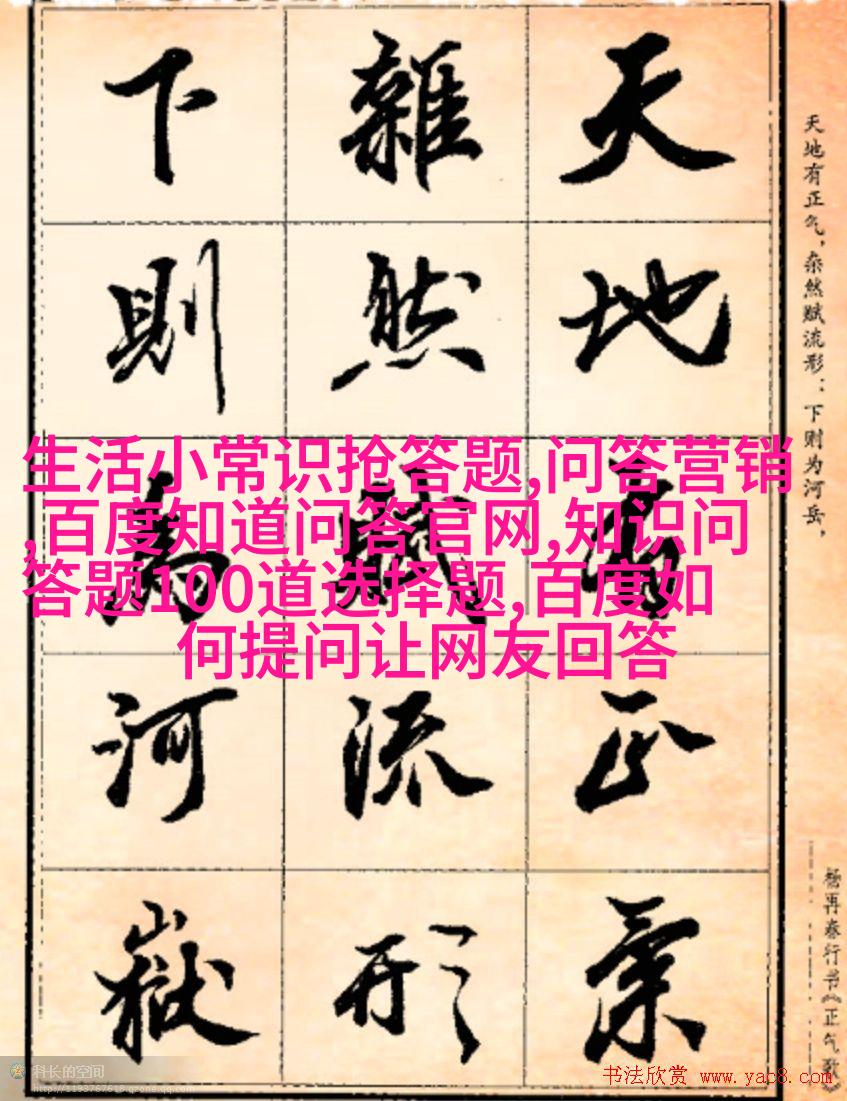 天地有正氣
雜然賦流形
下則為河嶽
天地有正气，杂然赋流形：下则为河岳，
杨再春行书《正气歌》
生活小常识抢答题,问答营销
,百度知道问答官网,知识问
答题100道选择题,百度如
何提问让网友回答
科长的空间
http://1193767618.qzone.qq.com
书法欣赏 www.yac8.com